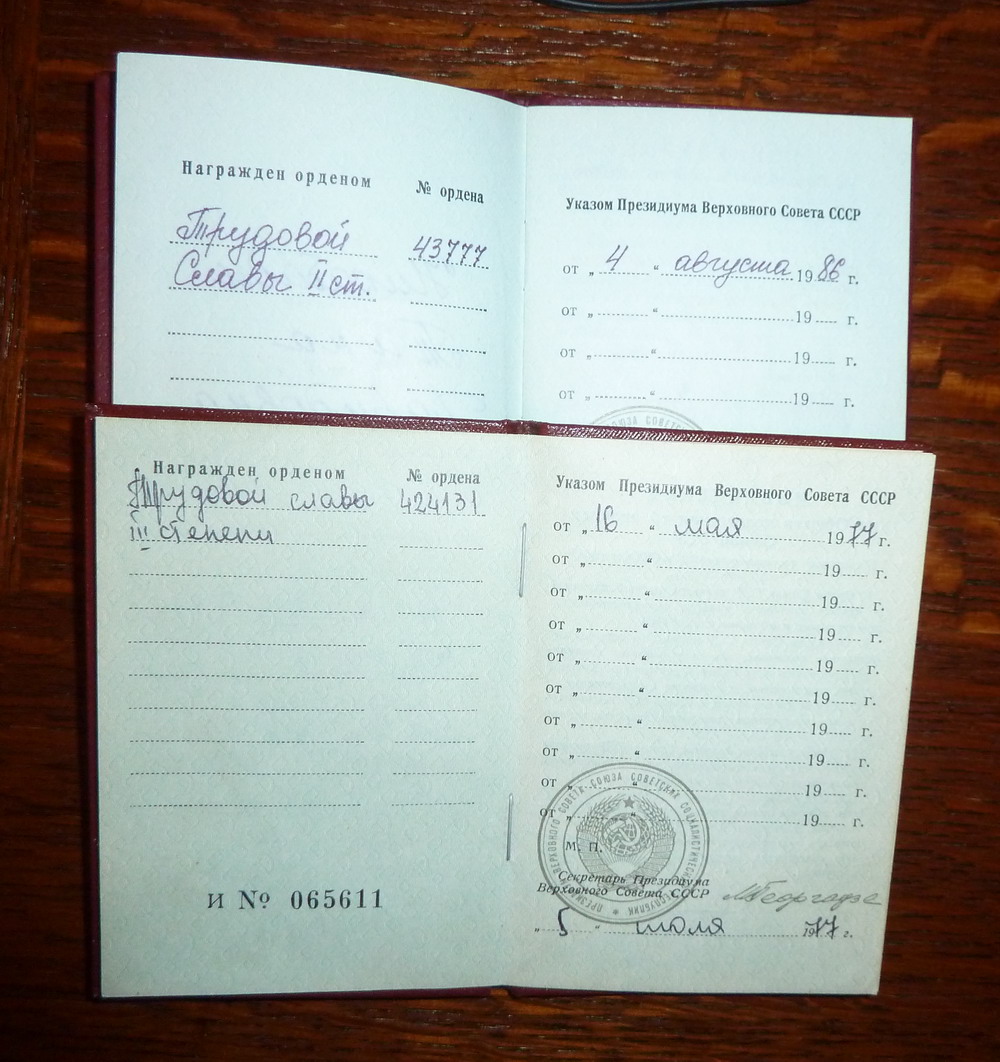 Награжден орденом № ордена
Трудовой 43777
Славы II ст.
Указом Президиума Верховного Совета СССР
от „ 4 “ августа 19 86 г.
от „ “ 19 г.
от „ “ 19 г.
от „ “ 19 г.
Награжден орденом № ордена
Трудовой славы 424131
III степени
И № 065611
Указом Президиума Верховного Совета СССР
от „ 16 “ мая 19 77 г.
от „ “ 19 г.
от „ “ 19 г.
от „ “ 19 г.
от „ “ 19 г.
от „ “ 19 г.
от „ “ 19 г.
от „ “ 19 г.
от „ “ 19 г.
от „ “ 19 г.
М. П.
Секретарь Президиума
Верховного Совета СССР
М Георгадзе
„ 5 “ июля 19 77 г.